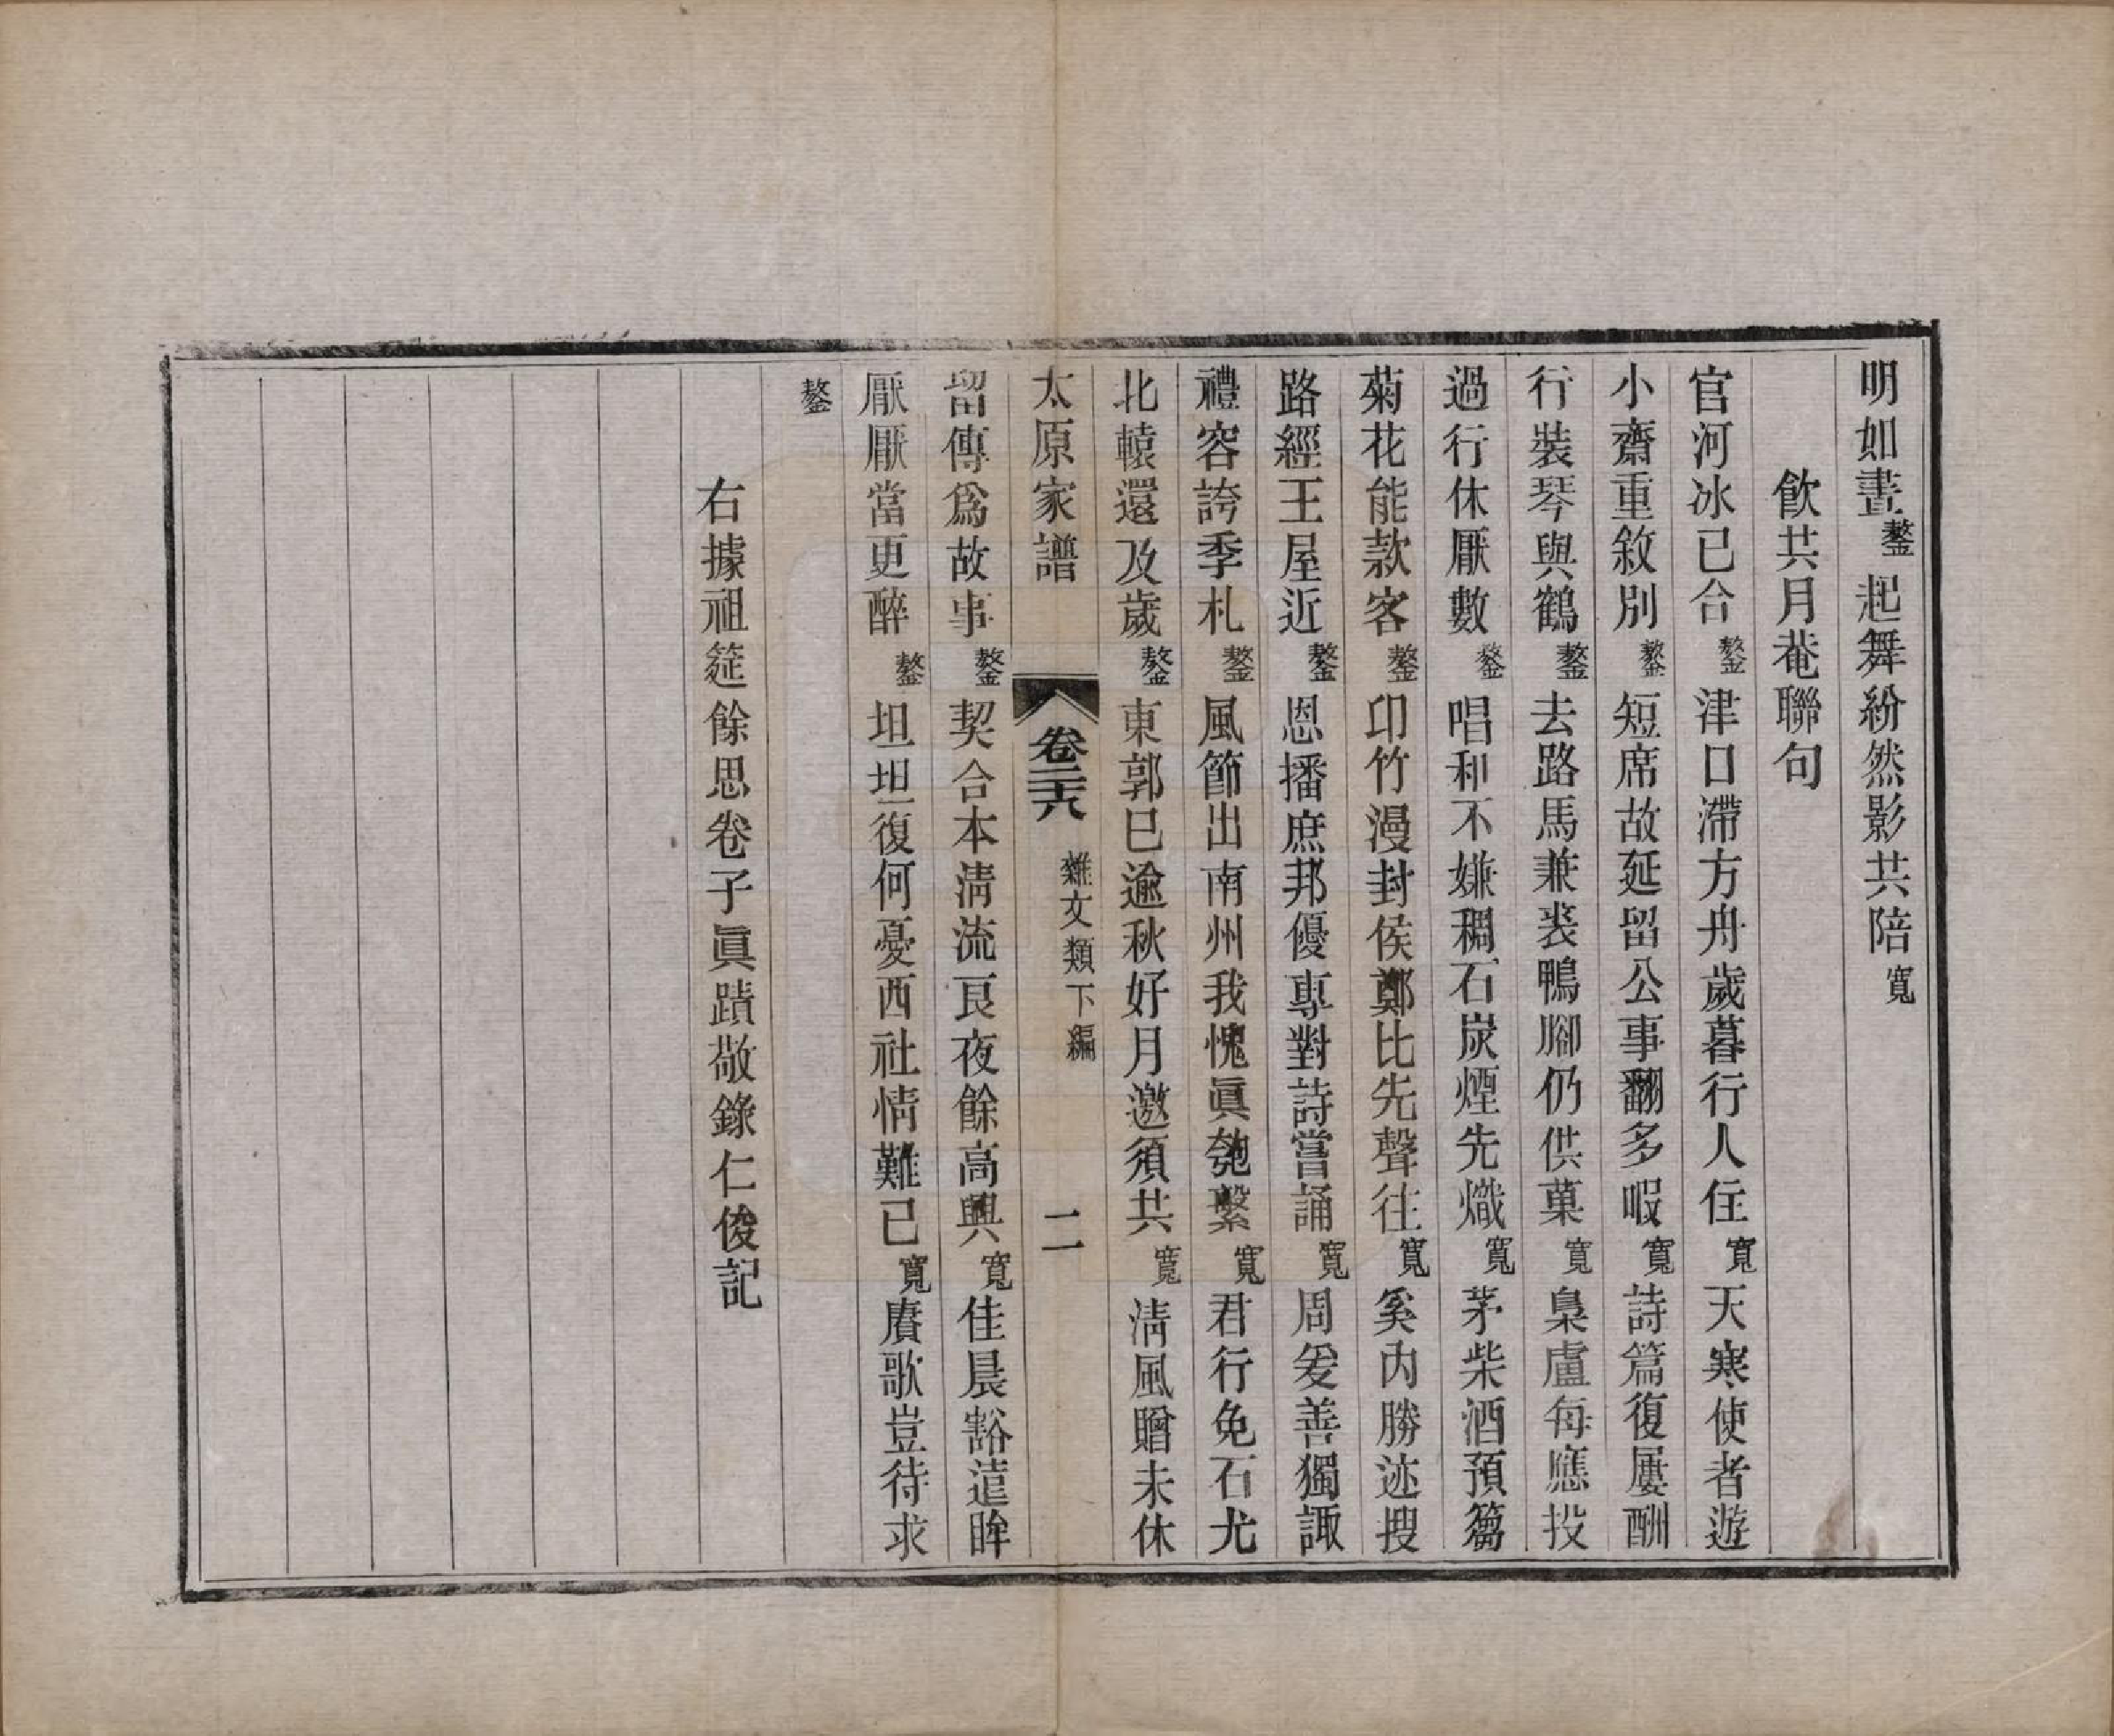 明如晝鏊起舞紛然影共陪寬
飲共月菴聯句
官河冰已合鏊津口滯方舟歲暮行人住寬天寒使者遊
小齋重敘別鏊短席故延留公事翻多暇寬詩篇復屢酬
行裝琴與鶴鏊去路馬兼裘鴨腳仍供菓寬梟盧每應投
過行休厭數鏊唱和不嫌稠石炭煙先熾寬茅柴酒預篘
菊花能款客鏊印竹漫封侯鄭比先聲往寬奚內勝迹搜
路經王屋近鏊恩播庶邦優專對詩嘗誦寬周爰善獨諏
禮容誇季札鏊風節出南州我愧眞匏繫寬君行免石尤
北轅還及歲鏊東郭巳逾秋好月邀須共寬淸風贈未休
太原家譜 卷二十六 雜文類下編 二
留傳爲故事鏊契合本淸流良夜餘高興寬佳晨豁遠眸
厭厭當更醉鏊坦坦復何憂西社情難已寬賡歌豈待求
鏊
右據祖筵餘思卷子眞蹟敬錄仁俊記